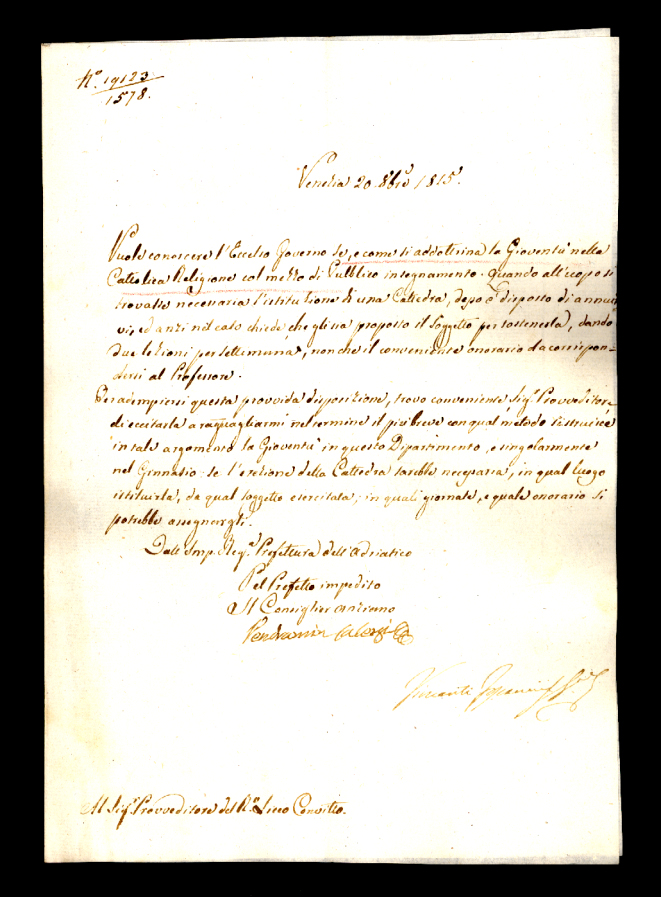 N.º 19123
1578.
Venezia 20. 8bre 1815.
Vuole conoscere l'Eccelso Governo se, e come si addottrina la Gioventù nella
Cattolica Religione col mezzo di Pubblico insegnamento. Quando all'uopo si
trovasse necessaria l'istituzione di una Cattedra, dopo è disposto di annuir
vi, ed anzi nel caso chiede, che gli sia proposto il soggetto per sostenerla, dando
due lezioni per settimana, non che il conveniente onorario da corrispon-
dersi al Professore.
Per adempiersi questa provvida disposizione, trovo conveniente, Sig.r Provveditore,
di eccitarla a ragguagliarmi nel termine il più breve con qual metodo s'istruisce
in tale argomento la Gioventù in questo Dipartimento, e singolarmente
nel Ginnasio: se l'erezione della Cattedra sarebbe necessaria, in qual luogo
istituirla, da qual soggetto esercitata; in quali giornate, e quale onorario si
potrebbe assegnargli.
Dall'Imp. Reg.a Prefettura dell'Adriatico
Pel Prefetto impedito
Il Consiglier anziano
Vendramin Calergi
Al Sig.r Provveditore del R.º Liceo Convitto.